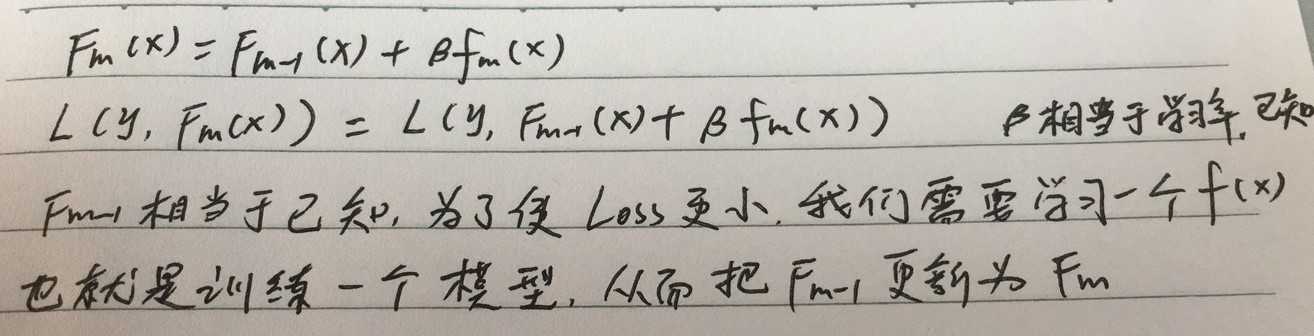 Fm(x) = Fm-1(x) + βfm(x)
L(y, Fm(x)) = L(y, Fm-1(x) + βfm(x)) β相当于学习率,已知
Fm-1相当于已知,为了使Loss更小,我们需要学习一个f(x)
也就是训练一个模型,从而把Fm-1更新为Fm